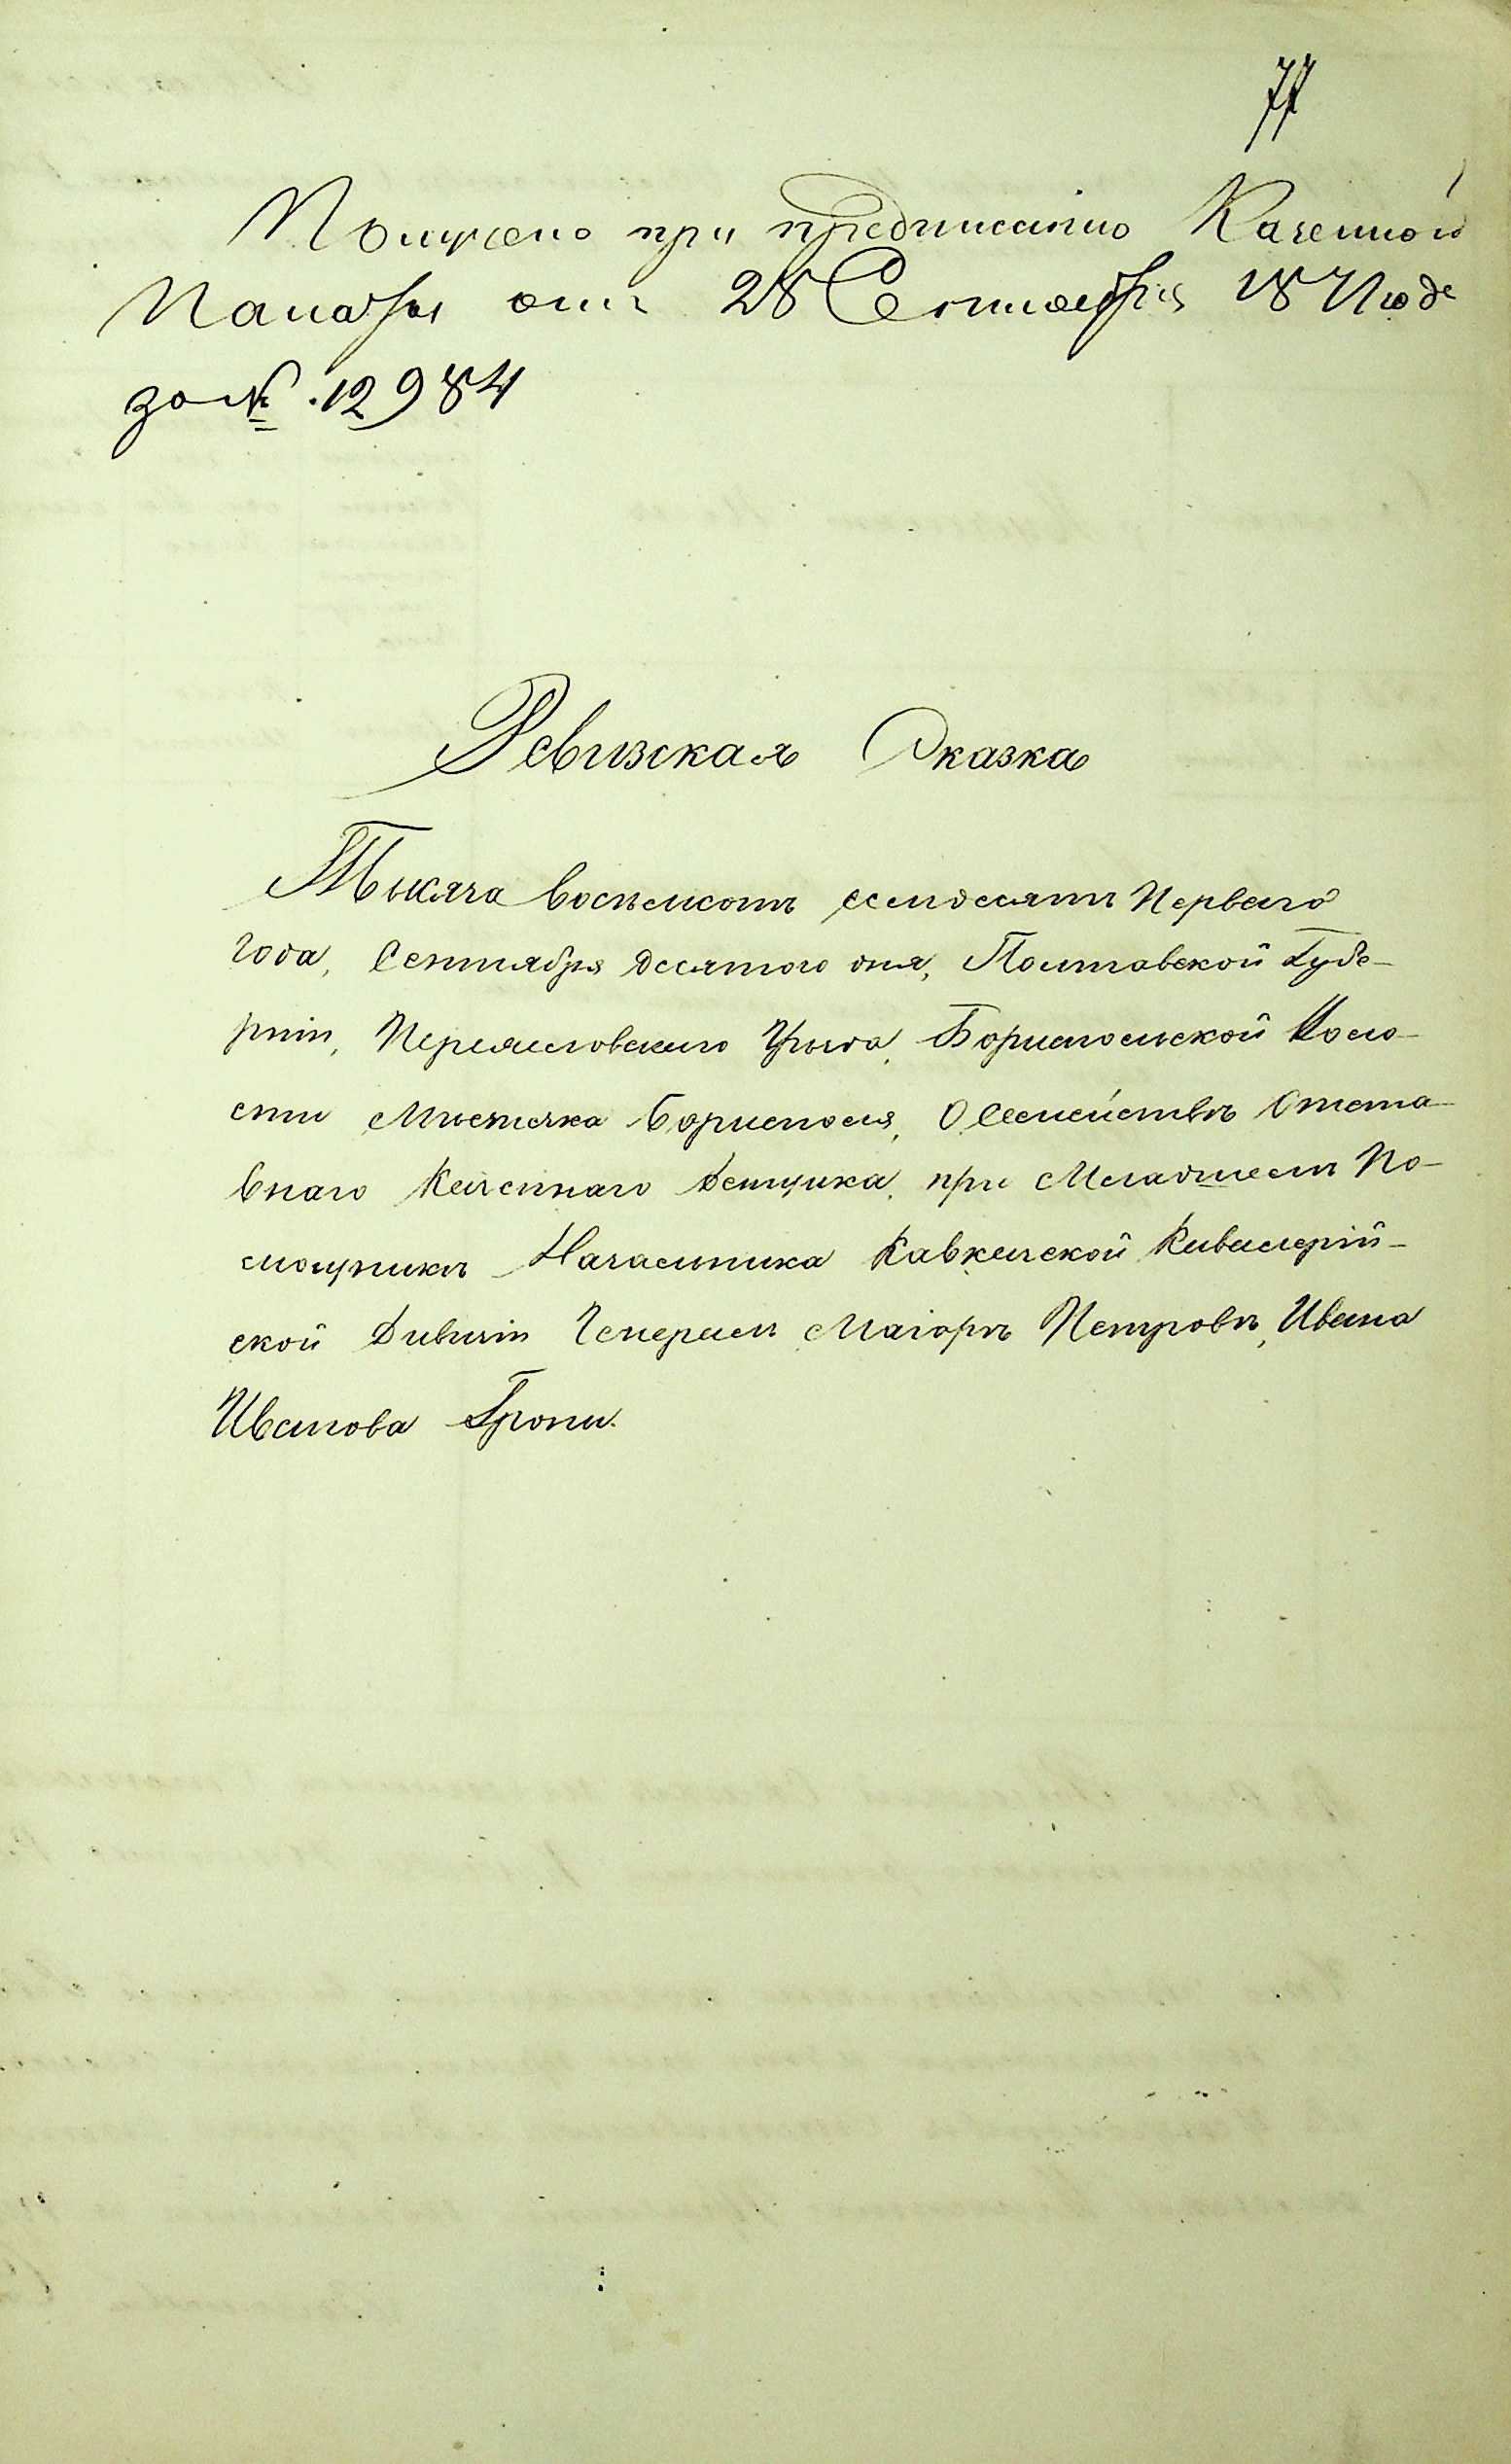 77
Получено при предписанію Казенной
Палаты отъ 28 Сентября 1871 года
за № 12984
Ревизская Сказка
Тысяча восемсотъ семдесятъ Перваго
года, Сентября десятого дня, Полтавской Губе-
рніи, Переяславскаго Уѣзда, Бориспольской Воло-
сти Мѣстечка Борисполя, О Семействѣ Отста-
внаго Казеннаго Денщика, при Младшемъ По-
мощникѣ Начальника Кавказской Кавалерій-
ской Дивизіи Генералъ Маіорѣ Петровѣ, Ивана
Иванова Гропи.